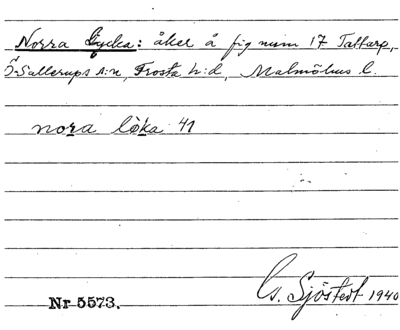 Norra Lycka: åker å fig num 17 Tattarp,
Ö. Sallerups s:n, Frosta h:d, Malmöhus l.
nora løka 41
Gs. Sjöstedt 1940
Nr 5573.